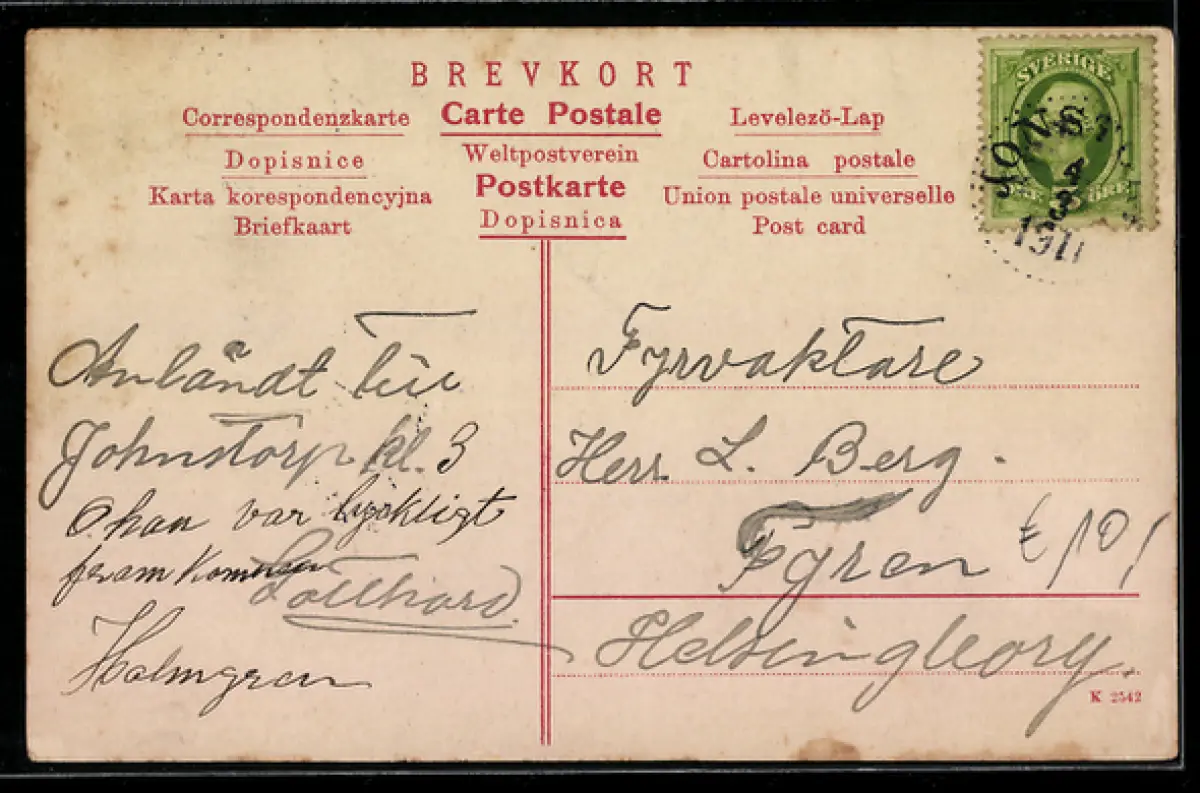 BREVKORT
Correspondenzkarte Carte Postale Levelező-Lap
Dopisnice Weltpostverein Cartolina postale
Karta korespondencyjna Postkarte Union postale universelle
Briefkaart Dopisnica Post card
SVERIGE
ÖRE
4
3
1911
Anländt till
Johnstorp kl. 3
O han var lyckligt
fram kommen
Lotthard
Halmgren
Fyrvaktare
Herr L. Berg.
Fyren
€ 10
Helsingborg
K 2542